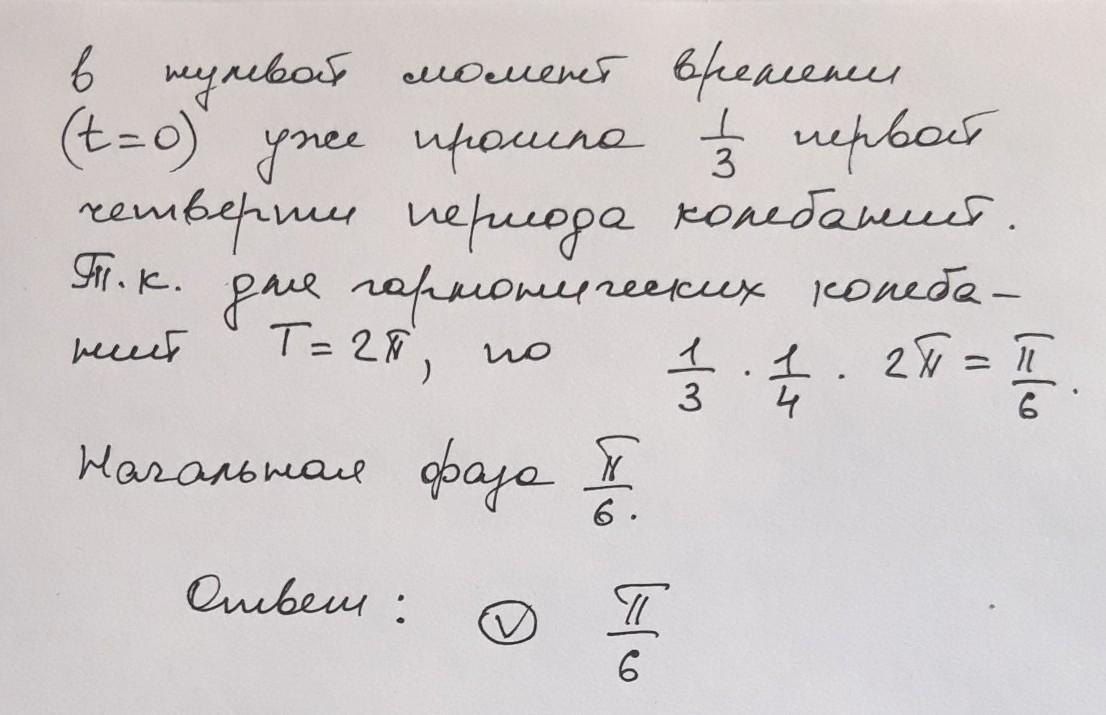 в нулевой момент времени
(t=0) уже прошла 1/3 первой
четверти периода колебаний.
Т.к. для гармонических колеба-
ний T = 2π, то 1/3 · 1/4 · 2π = π/6.
Начальная фаза π/6.
Ответ: V π/6